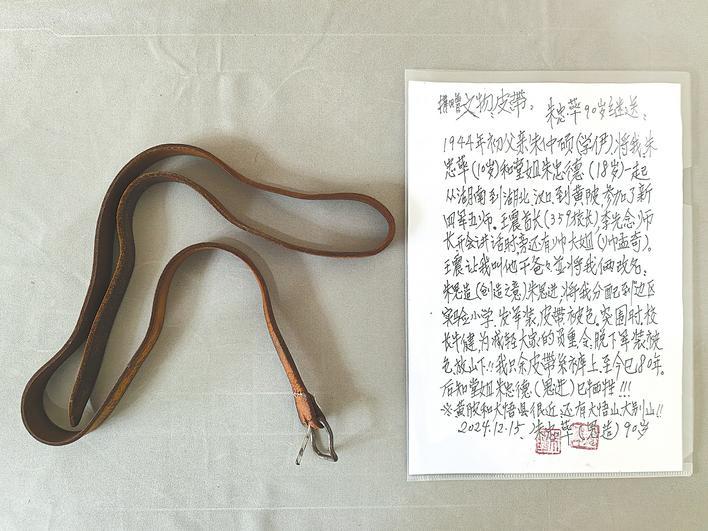 捐赠文物皮带： 朱忠苹90岁继送：
1944年初父亲朱仲硕(学伊)将我朱
忠苹(10岁)和堂姐朱忠德(18岁)一起
从湖南到湖北汉口到黄陂参加了新
四军五师。王震首长(359旅长)李先念师
长开会讲话时旁还有帅大姐(帅孟奇)。
王震让我叫他干爸々並将我俩改名：
朱思造(创造之意)朱思进,将我分配到边区
实验小学,发军装,皮带,被包。突围时,校
长牛健,为减轻大家的负重,令,脱下军装,被
包放山下!!我只余皮带系裤上,至今已80年。
后知堂姐朱忠德(思进)已牺牲!!!
※黄陂和大悟县很近,还有大悟山大别山!!
2024.12.15. 朱忠苹(思造)90岁